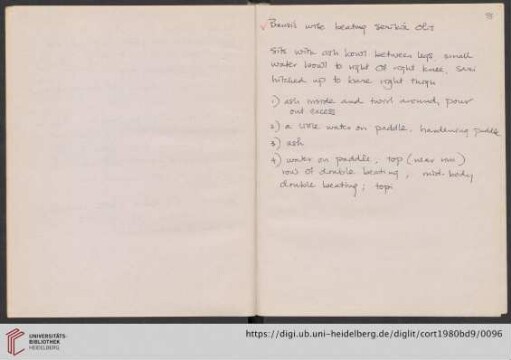 wife beating
Sits with ash bowl between legs, small
water bowl to right of right knee, sari
hitched up to bare right thigh
1) ash inside and twirl around, pour
out excess
2) a little water on paddle. hardening paddle
3) ash
4) water on paddle; top (near rim)
row of double beating; mid-body
double beating; top;
UNIVERSITÄTS-
BIBLIOTHEK
HEIDELBERG
https://digi.ub.uni-heidelberg.de/diglit/cort1980bd9/0096